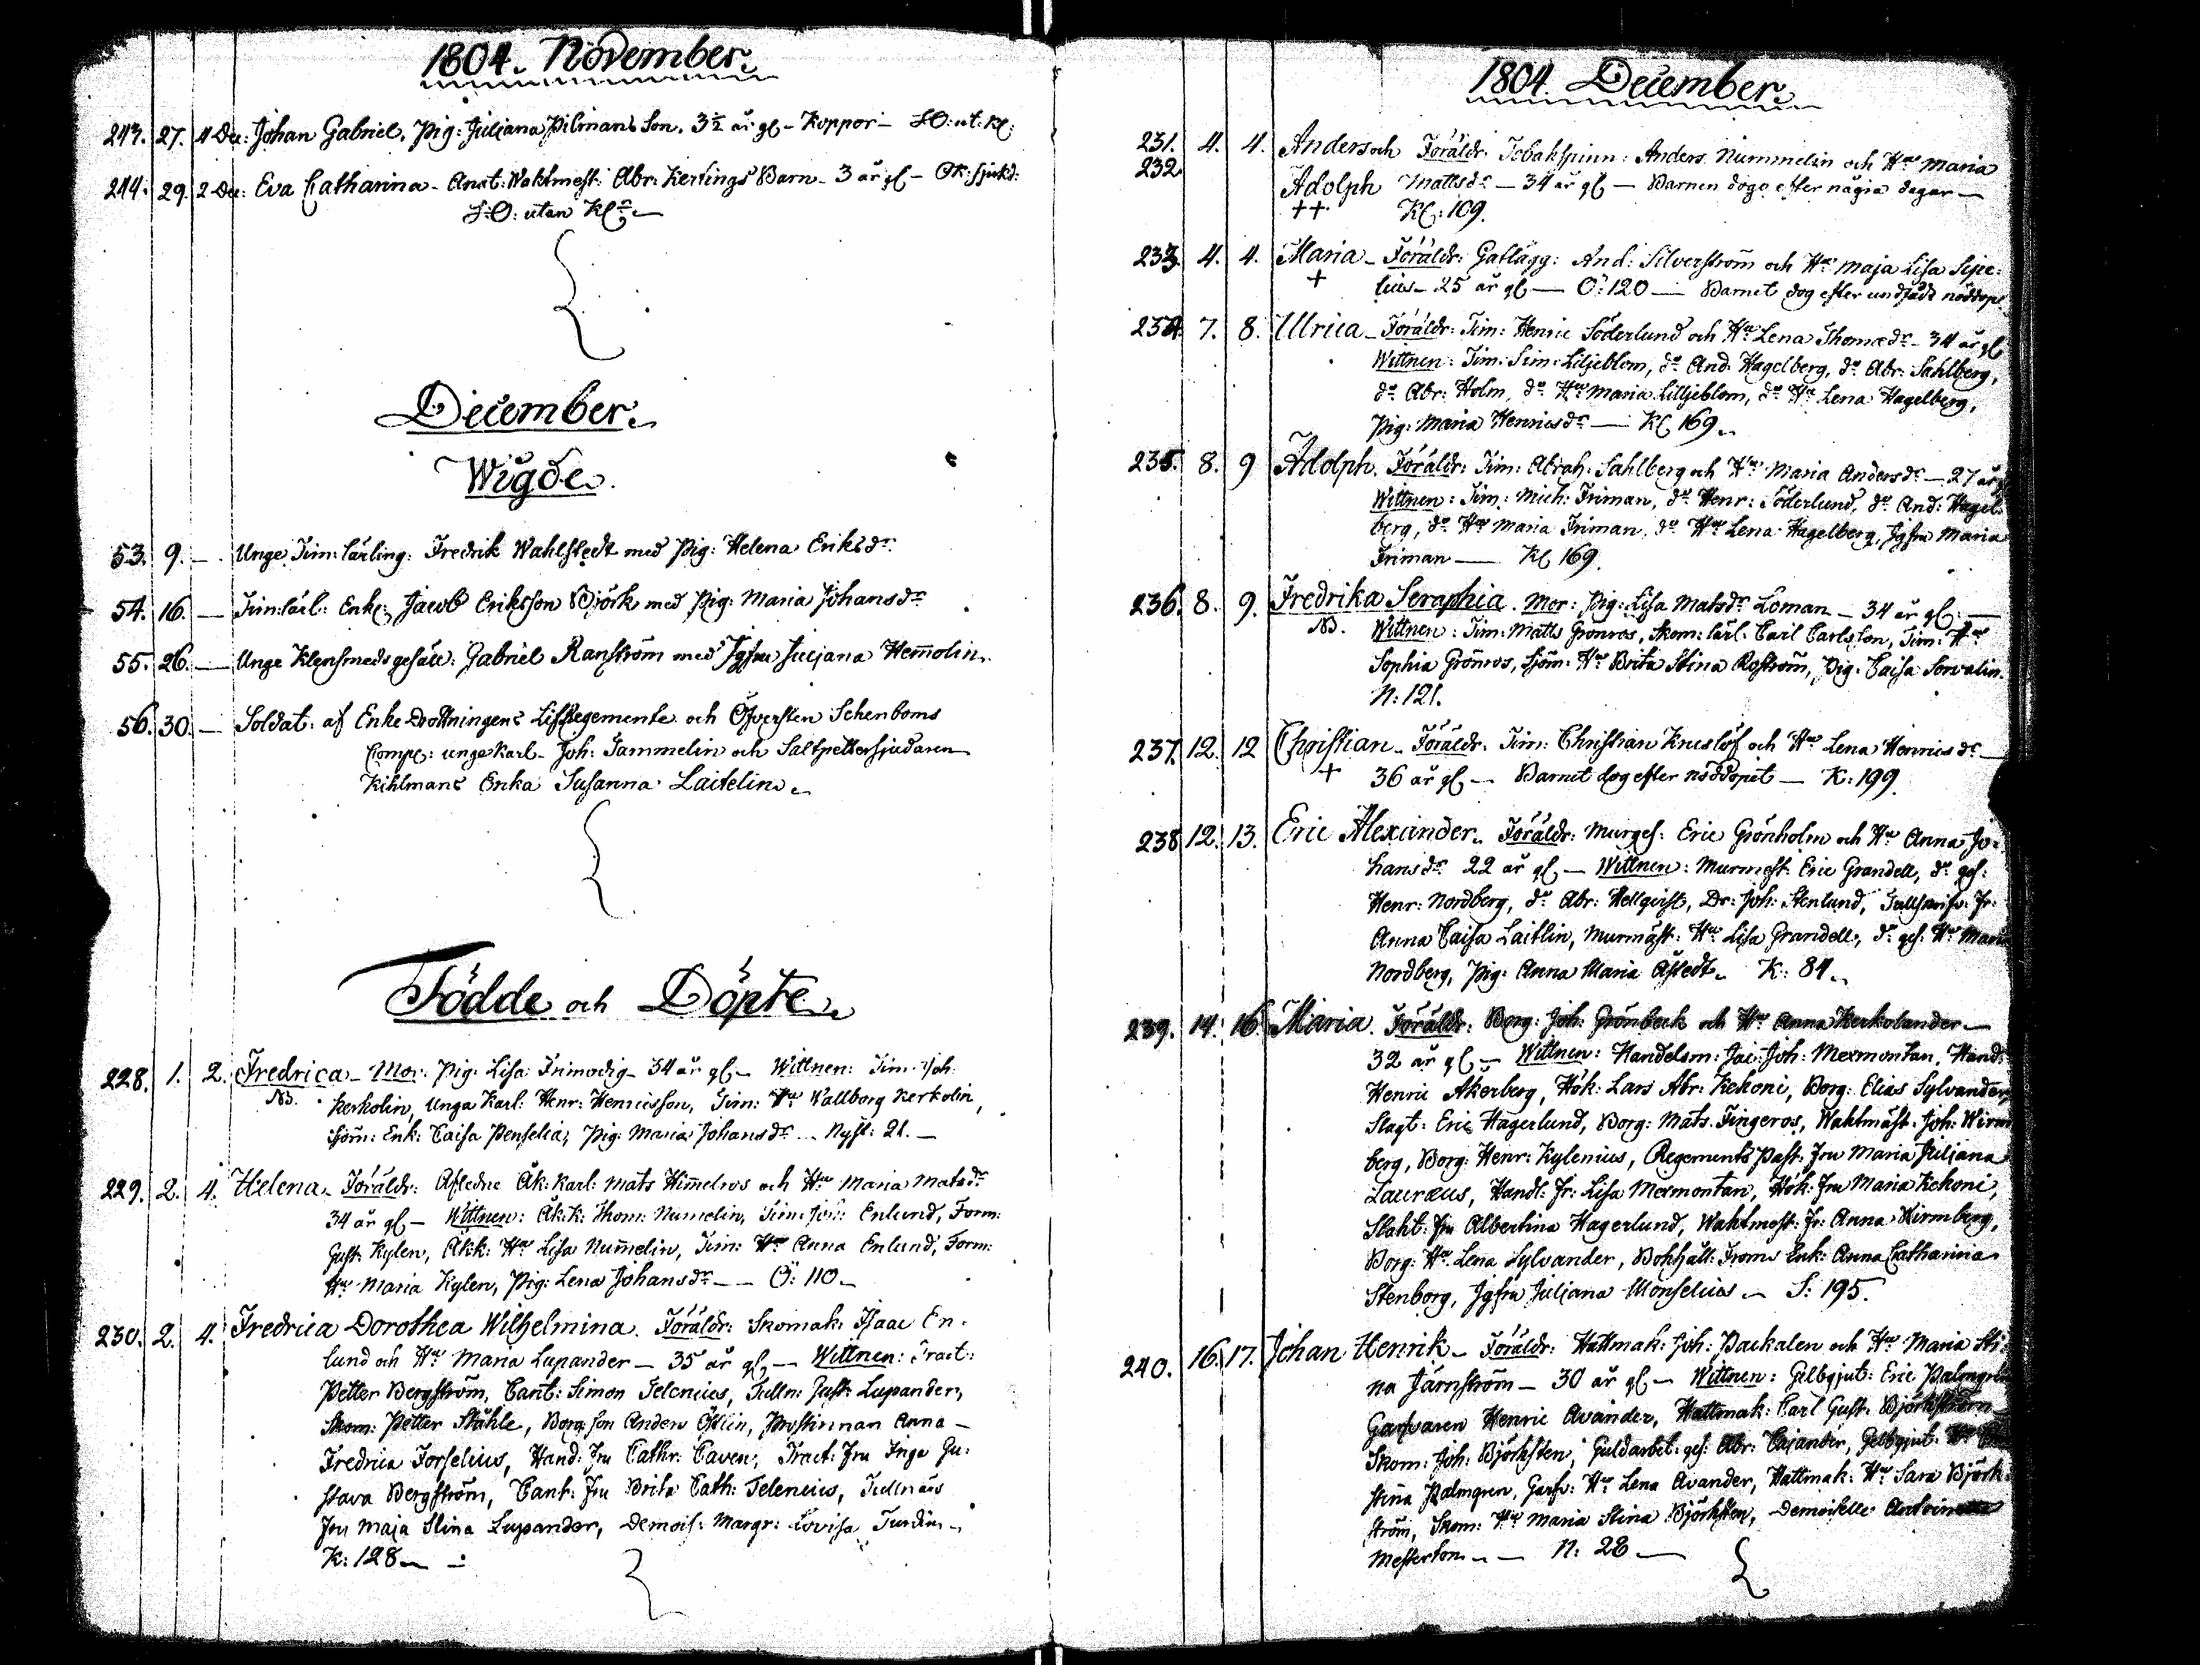 1804. November.
243. 27. 4 Dec: Johan Gabriel. Pig: Juliana Pilmans Son. 3½ år gl - Koppor - S:O: ut: Kl:
244. 29. 2 Dec: Eva Catharina - Anat: Waktmest: Abr: Kertings Barn - 3 år gl - Ok: sjukd:
S:O: utan Kl:r
December.
Wigde.
53. 9. - Unge Tim: lärling: Fredrik Wahlstedt med Pig: Helena Eriksdr.
54. 16. - Tim: lärl: Enkl: Jacob Eriksson Björk med Pig: Maria Johansdr
55. 26. - Unge Klensmedsgesäll: Gabriel Ranström med Jgfru Juljana Hem̄olin.
56. 30. - Soldat: af Enke Drottningens Lifregemente och Öfversten Schenboms
Comp: unge karl - Joh: Tammelin och Saltpettersjudaren
Kihlmans Enka Susanna Laitelin.
Födde och Döpte.
228. 1. 2. Fredrica - Mor: Pig: Lisa Frimodig - 34 år gl - Wittnen: Tim: Joh:
NB. Kerkolin, Unga Karl: Henr: Henricsson, Tim: Hu Wallborg Kerkolin,
Sjöm: Enk: Caisa Penselia, Pig: Maria Johansdr - Nyst: 21. -
229. 2. 4. Helena - Föräldr: Afledne Åk: karl: Mats Him̄elros och Hu Maria Matsdr
34 år gl - Wittnen: Åk: K: Thom: Num̄elin, Tim: Joh: Enlund, Form:
Gust: Kylen, Åk: k: Hu Lisa Num̄elin, Tim: Hu Anna Enlund, Form:
Hu Maria Kylen, Pig: Lena Johansdr - - Ö: 110 -
230. 2. 4. Fredrica Dorothea Wilhelmina. Föräldr: Skomak: Isaac En-
lund och Hu Maria Lupander - 35 år gl, - Wittnen: Tract:
Petter Bergström, Cant: Simon Telenius, Tulln: Gust: Lupander,
Skom: Petter Ståhle, Borg: son Anders Östlin, Prostinnan Anna -
Fredrica Forselius, Hand: Fru Cathr: Caven, Tract: Fru Inga Gu:
stava Bergström, Cant: Fru Brita Cath: Telenius, Tullnärs
Fru Maja Stina Lupander, Demois: Margr: Lovisa
K: 128 -
1804. December.
231. 4. 4. Anders och Föräldr: Tobakspinn: Anders Nummelin och Hu Maria
232. Adolph Mattsdr - 34 år gl - Barnen dogo efter några dagar -
++ Kl: 109.
233. 4. 4. Maria - Föräldr: Gatlägg: And: Silverström och Hu Maja Lisa Sipe:
+ lius - 25 år gl - Ö: 120 - Barnet dog efter undfådt nöddop:
234. 7. 8. Ulrica - Föräldr: Tim: Henric Söderlund och Hu Lena Thomædr - 34 år gl
Wittnen: Tim: Sim: Liljeblom, do And: Hagelberg, do Abr: Sahlberg,
do Abr: Holm, do Hu Maria Lilljeblom, do Hu Lena Hagelberg,
Pig: Maria Henricsdr - Kl 169.
235. 8. 9 Adolph. Föräldr: Tim: Abrah: Sahlberg och Hu Maria Andersdr - 27 år
Wittnen: Tim: Mich: Friman, do Henr: Söderlund, do And: Hagel-
berg, do Hu Maria Friman, do Hu Lena Hagelberg, Jgfru Maria
Friman - Kl 169.
236. 8. 9. Fredrika Seraphia. Mor: Pig: Lisa Matsdr Loman - 34 år gl: -
NB. Wittnen: Tim: Matts Grönros, Skom: lärl: Carl Carlsson, Tim: Hu
Sophia Grönros, Sjöm: Hu Brita Stina Roström, Pig: Caisa Sorvalin.
N: 121.
237. 12. 12 Christian - Föräldr: Tim: Christian Knislöf och Hu Lena Henricsdr -
+ 36 år gl - Barnet dog efter nöddopet - K: 199.
238 12. 13. Eric Alexander. Föräldr: Murges: Eric Grönholm och Hu Anna Jo-
hansdr 22 år gl - Wittnen: Murmest: Eric Grandell, do ges:
Henr: Nordberg, do Abr: Hellqvist, Dr: Joh: Stenlund, Fr:
Anna Caisa Laitlin, Murmäst: Hu Lisa Grandell, do ges: Hu Maria
Nordberg, Pig: Anna Maria Åstedt. K: 84.
239. 14. 16. Maria. Föräldr: Borg: Joh: Grönbeck och Hu Anna Kerkolander -
32 år gl - Wittnen: Handelsm: Jac: Joh: Mexmontan, Hand:
Henric Åkerberg, Hök: Lars Abr: Kekoni, Borg: Elias Sylvander,
Slagt: Eric Hagerlund, Borg: Mats Fingeros, Waktmäst: Joh: Wirm
berg, Borg: Henr: Kylenius, Regements Past: Fru Maria Juliana
Lauræus, Handl: Fr: Lisa Mexmontan, Hök: Fru Maria Kekoni,
Slakt: Fru Albertina Hagerlund, Waktmest: Fr: Anna Wirmberg,
Borg: Hu Lena Sylvander, Bokhåll: Froms Enk: Anna Catharina
Stenborg, Jgfru Juliana Monselius - S: 195.
240. 16. 17. Johan Henrik - Föräldr: Hattmak: Joh: Packalen och Hu Maria Sti:
na Järnström - 30 år gl - Wittnen: Gelbgjut: Eric Palmgren
Garfvaren Henric Avander, Hattmak: Carl Gust: Björkström
Skom: Joh: Björksten, Guldarbet: ges: Abr: Cajander, Gelbgjut: Hu
Stina Palmgren, Garfv: Hu Lena Avander, Hattmak: Hu Sara Björk-
ström, Skom: Hu Maria Stina Björksten, Demoiselle
Messerton - - N: 28 -